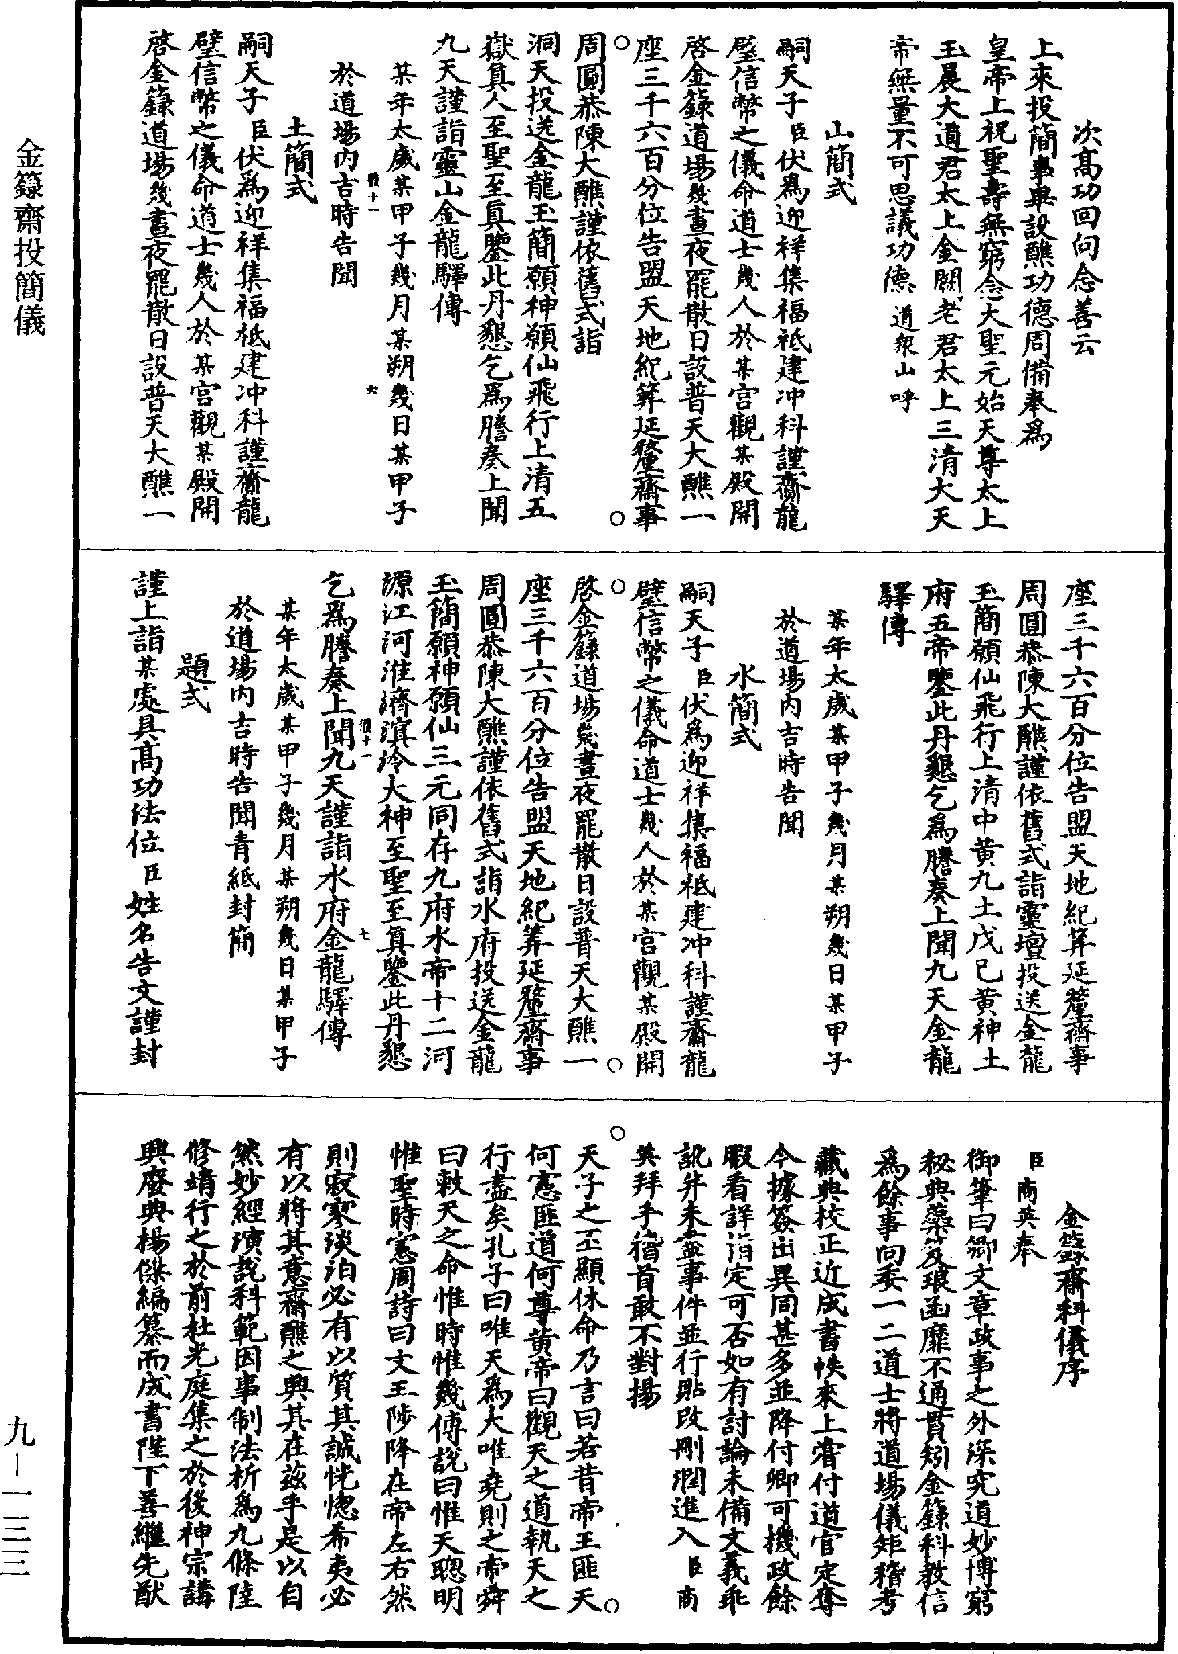 次高功回向念善云
上來投簡事畢設醮功德周備奉爲
皇帝上祝聖壽無窮念大聖元始天尊太上
玉晨大道君太上金闕老君太上三清大天
帝無量不可思議功德道衆山呼
山簡式
嗣天子臣伏爲迎祥集福祗建冲科謹齎龍
璧信幣之儀命道士幾人於某宮觀某殿開
啓金籙道場幾晝夜罷散日設普天大醮一
座三千六百分位告盟天地紀筭延釐齋事
周圓恭陳大醮謹依舊式詣
洞天投送金龍玉簡願神願仙飛行上清五
嶽真人至聖至真鑒此丹懇乞爲騰奏上聞
九天謹詣靈山金龍驛傳
某年太歲某甲子幾月某朔幾日某甲子
於道場內吉時告聞
土簡式
嗣天子臣伏爲迎祥集福祗建冲科謹齎龍
璧信幣之儀命道士幾人於某宮觀某殿開
啓金籙道場幾晝夜罷散日設普天大醮一
座三千六百分位告盟天地紀筭延釐齋事
周圓恭陳大醮謹依舊式詣靈壇投送金龍
玉簡願仙飛行上清中黃九土戊己黃神土
府五帝鑒此丹懇乞爲騰奏上聞九天金龍
驛傳
某年太歲某甲子幾月某朔幾日某甲子
於道場內吉時告聞
水簡式
嗣天子臣伏爲迎祥集福祗建冲科謹齎龍
璧信幣之儀命道士幾人於某宮觀某殿開
啓金籙道場幾晝夜罷散日設普天大醮一
座三千六百分位告盟天地紀筭延釐齋事
周圓恭陳大醮謹依舊式詣水府投送金龍
玉簡願神願仙三元同存九府水帝十二河
源江河淮濟溟泠大神至聖至真鑒此丹懇
乞爲騰奏上聞九天謹詣水府金龍驛傳
某年太歲某甲子幾月某朔幾日某甲子
於道場內吉時告聞青紙封簡
題式
謹上詣某處具高功法位臣姓名告文謹封
金籙齋科儀序
臣商英奉
御筆曰卿文章政事之外深究道妙博窮
秘典蘂笈琅函靡不通貫矧金籙科教信
爲餘事向委一二道士將道場儀矩稽考
藏典校正近成書帙來上嘗付道官定奪
今據簽出異同甚多並降付卿可機政餘
暇看詳指定可否如有討論未備文義乖
訛并未盡事件並行貼改刪潤進入臣商
英拜手稽首敢不對揚
天子之丕顯休命乃言曰若昔帝王匪天
何憲匪道何尊黃帝曰觀天之道執天之
行盡矣孔子曰唯天爲大唯堯則之帝舜
曰敕天之命惟時惟幾傅說曰惟天聰明
惟聖時憲周詩曰文王陟降在帝左右然
則寂寥淡泊必有以質其誠恍惚希夷必
有以將其意齋醮之興其在茲乎是以自
然妙經演說科範因事制法析爲九條陸
修靖行之於前杜光庭集之於後神宗講
興廢典楊傑編纂而成書陛下善繼先猷
金籙齋投簡儀
九－一三三